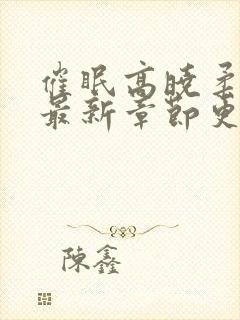 催眠高晓柔
最新章節更
陳鑫